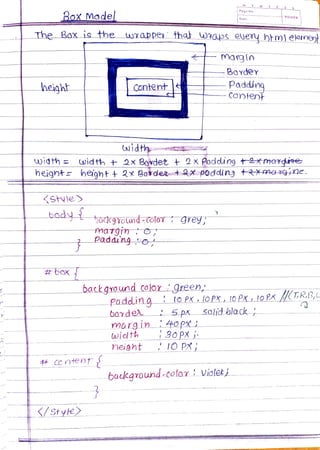 Box Model
The Box is the wrapper that wraps every html element
margin
Border
Padding
Content
height
content
width
width = width + 2 x Border + 2 x Padding + 2 x margine
height = height + 2 x Border + 2 x padding + 2 x margine.
<style>
body {
background-color : grey;
margin : 0;
Padding : 0;
}
# box {
background color : green;
Padding : 10 PX, 10 PX, 10 PX, 10 PX //(T,R,B,L
border : 5 px solid black ;
margin : 40 PX ;
width : 30 PX ;
height : 10 PX ;
# content {
background-color : violet;
}
</style>